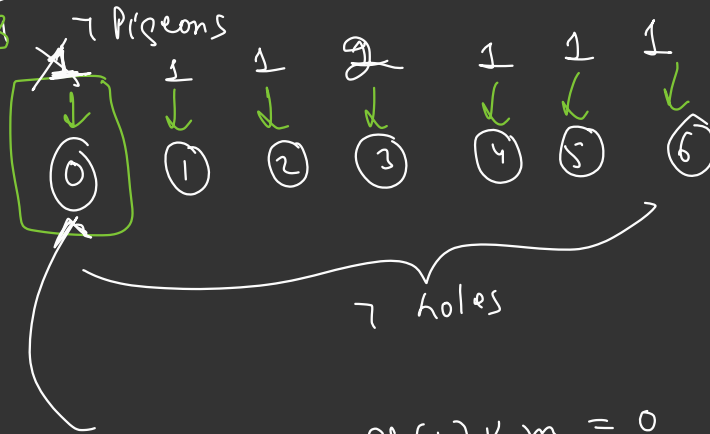 7 Pigeons
1 1 1 2 1 1 1
0 1 2 3 4 5 6
7 holes
= 0